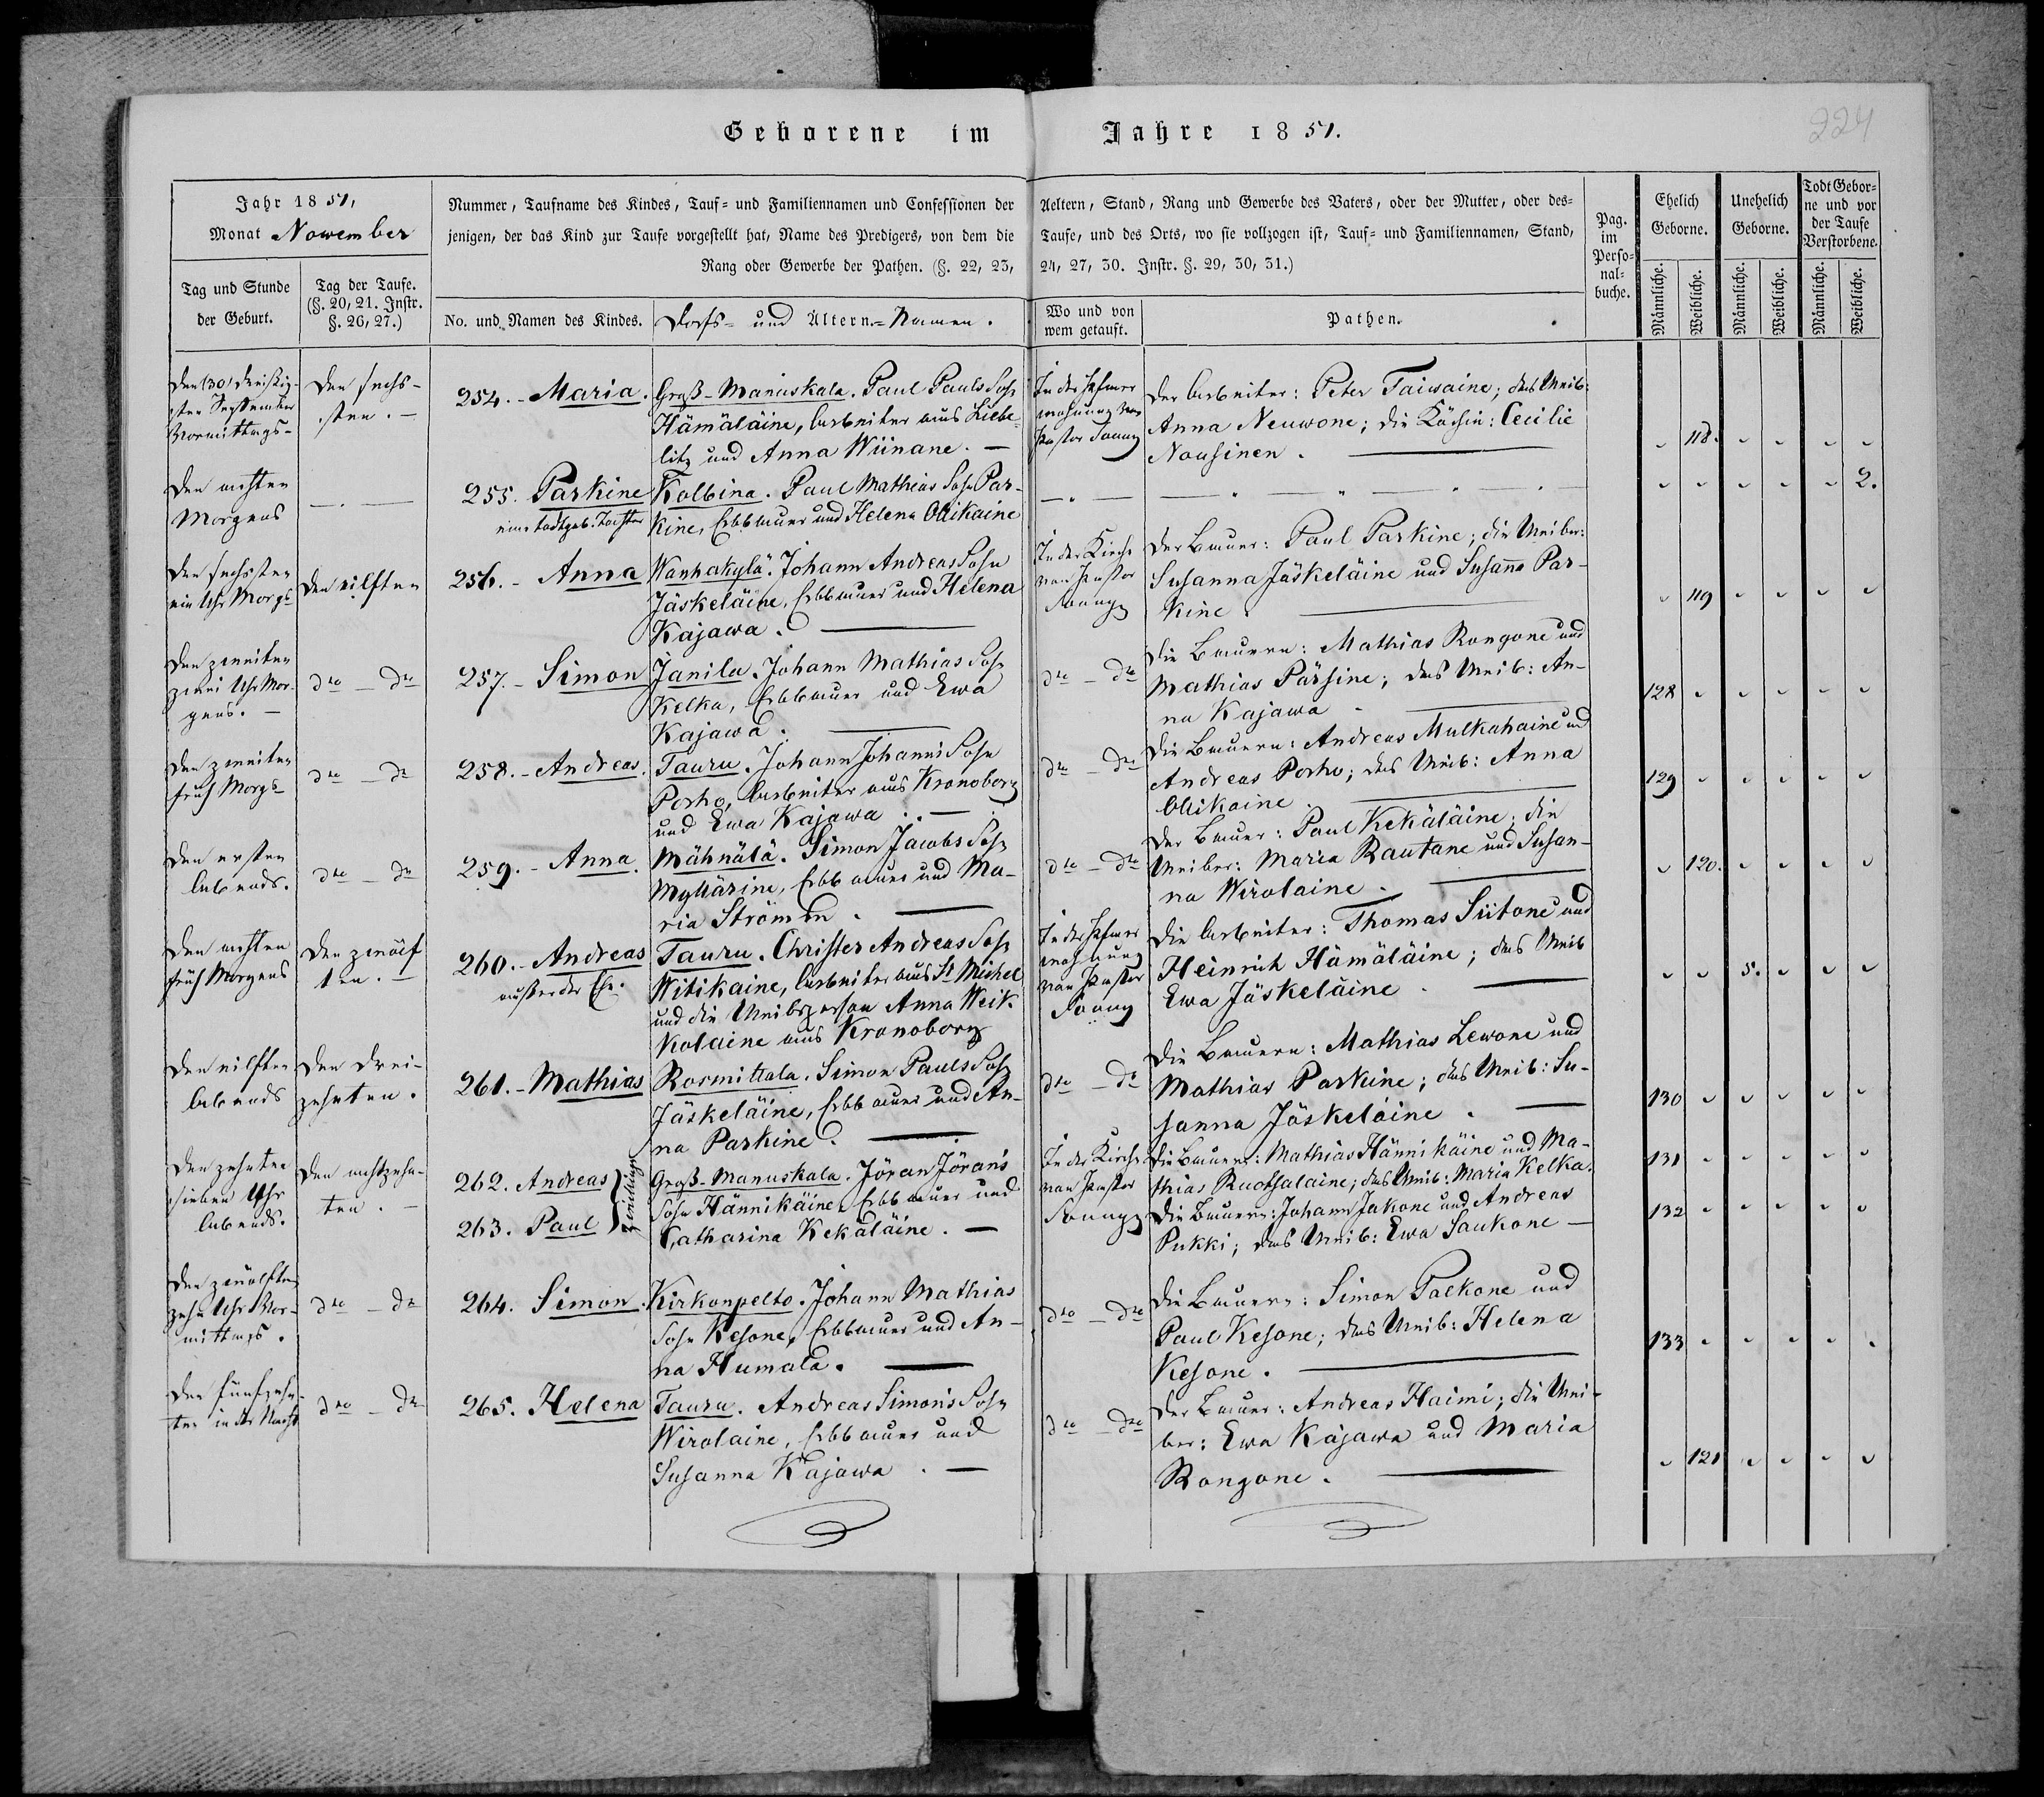 Geborene im Jahre 1851.
224
Jahr 1851,
Monat Nowember
Nummer, Taufname des Kindes, Tauf- und Familiennamen und Confessionen der Aeltern, Stand, Rang und Gewerbe des Vaters, oder der Mutter, oder des-
jenigen, der das Kind zur Taufe vorgestellt hat, Name des Predigers, von dem die Taufe, und des Orts, wo sie vollzogen ist, Tauf- und Familiennamen, Stand,
Rang oder Gewerbe der Pathen. (§. 22, 23, 24, 27, 30. Instr. §. 29, 30, 31.)
Pag.
im
Perso-
nal-
buche.
Ehelich
Geborne.
Unehelich
Geborne.
Todt Gebor-
ne und vor
der Taufe
Verstorbene.
Tag und Stunde
der Geburt.
Tag der Taufe.
(§. 20, 21. Instr.
§. 26, 27.)
No. und Namen des Kindes.
Dorfs- und Ältern-Namen.
Wo und von
wem getauft.
Pathen.
Männliche. Weibliche. Männliche. Weibliche. Männliche. Weibliche.
Den (30) dreißig-
sten September
Vormittags-
Den sechs-
sten. -
254. - Maria.
Groß-Manuskala. Paul Pauls Sohn
Hämäläine, Arbeiter aus Liebe-
litz und Anna Wiinane. -
In der
wohnung von
Pastor
Der Arbeiter: Peter Taiwaine; das Weib:
Anna Neuwone; die Köchin: Cecilie
Nousinen.
118.
Den achten
Morgens
255. Parkine
eine todtgeb. Tochter
Kolbina. Paul Mathias Sohn Par-
kine, Erbbauer und Helena Ollikaine
2.
Den sechsten
ein Uhr Morgs
Den eilften
256. - Anna
Wanhakylä. Johann Andreas Sohn
Jäskeläine, Erbbauer und Helena
Kajawa.
In der Kirche
von Pastor
Der Bauer: Paul Parkine; die Weiber:
Susanna Jäskeläine und Susanna Par-
kine.
119
Den zweiten
zwei Uhr Mor-
gens. -
dto - dto
257. - Simon
Janila. Johann Mathias Sohn
Kelka, Erbbauer und Ewa
Kajawa.
dto - dto
Die Bauern: Mathias Rongone und
Mathias Pärsine; das Weib: An-
na Kajawa
128
Den zweiten
früh Morgs
dto - dto
258. - Andreas.
Tauru. Johann Johanns Sohn
Porho, Arbeiter aus Kronoborg
und Ewa Kajawa. -
dto - dto
Die Bauern: Andreas Mulkahaine und
Andreas Porho; das Weib: Anna
Ollikaine.
129
Den ersten
Abends.
dto - dto
259. - Anna.
Mähnälä. Simon Jacobs Sohn
Myllärine, Erbbauer und Ma-
ria Strömen.
dto - dto
Der Bauer: Paul Kekäläine; die
Weiber: Maria Rautane und Susan-
na Wirolaine.
120.
Den achten
früh Morgens
Den zwölf
ten. -
260. - Andreas
außer der Ehe.
Tauru. Christer Andreas Sohn
Witikaine, Arbeiter aus St. Michel
und die Weibsperson Anna Weik-
kolaine aus Kronoborg
In der
wohnung
von Pastor
Die Arbeiter: Thomas Siitone und
Heinrich Hämäläine; das Weib
Ewa Jäskeläine.
5.
Den eilften
Abends
Den drei-
zehnten.
261. - Mathias
Rosmittala. Simon Pauls Sohn
Jäskeläine, Erbbauer und An-
na Parkine.
dto - dto
Die Bauern: Mathias Lewone und
Mathias Parkine; das Weib: Su-
sanna Jäskeläine.
130
Den zehnten
sieben Uhr
Abends.
Den achtzehn-
ten. -
262. Andreas
263. Paul
Zwillinge
Groß-Manuskala. Jöran Jörans
Sohn Hännikäine, Erbbauer und
Catharina Kekäläine. -
In der Kirche
von Pastor
Die Bauern: Mathias Hännikäine und Ma-
thias Ruotsalaine; das Weib: Maria Kelka.
Die Bauern: Johann Jakone und Andreas
Pukki; das Weib: Ewa Saukone -
131
132
Den zwölften
zehn Uhr Vor-
mittags.
dto - dto
264. Simon.
Kirkonpelto. Johann Mathias
Sohn Kesone, Erbbauer und An-
na Humala.
dto - dto
Die Bauern: Simon Paekone und
Paul Kesone; das Weib: Helena
Kesone.
133
Den fünfzehn-
ten in der Nacht
dto - dto
265. Helena
Tauru. Andreas Simons Sohn
Wirolaine, Erbbauer und
Susanna Kajawa. -
dto - dto
Der Bauer: Andreas Haimi; die Wei-
ber: Ewa Kajawa und Maria
Rongone.
121